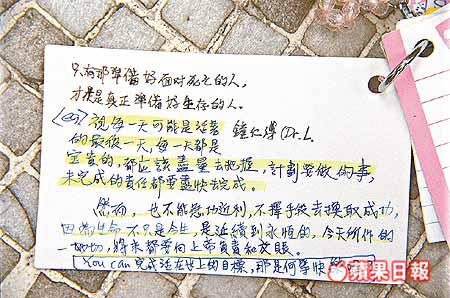 只有那準備好面對死亡的人，
才是真正準備好生存的人。
視每一天可能是活著 鐘仁溥(Dr.)
的最後一天，每一天都是
寶貴的，都應該盡量去把握，計劃要做的事，
未完成的責任都要盡快去完成。
然而，也不能急功近利，不擇手段去換取成功，
因為生命不只是今生，是延續到永恆的，今天所作的
一切，將來都要向上帝負責和交賬。
You can 完成活在世上的目標，那是何等快
蘋果日報